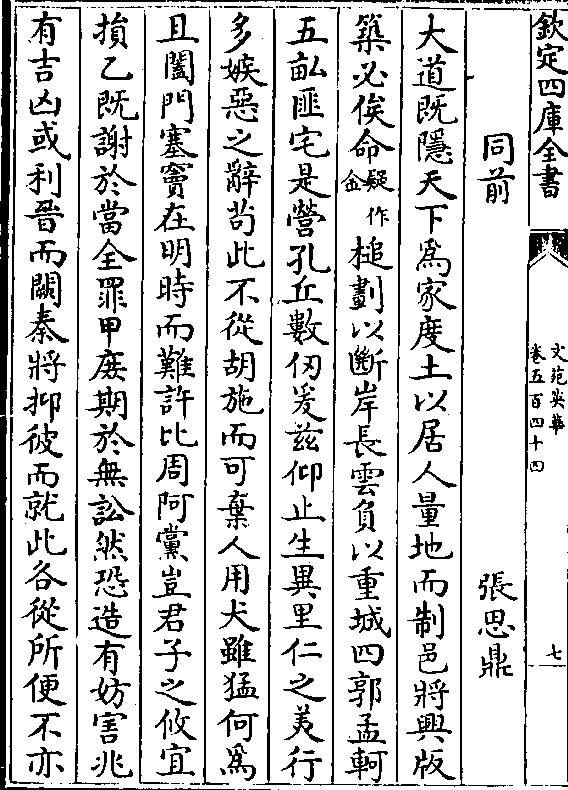 欽定四庫全書
文苑英華
卷五百四十四
七
同前
張思鼎
大道既隱天下為家度土以居人量地而制邑將興版
築必俟命疑作金槌劃以斷岸長雲負以重城四郭孟軻
五畝匪宅是營孔丘數仭爰兹仰止生異里仁之美行
多嫉惡之辭苟此不從胡施而可棄人用犬雖猛何為
且闔門塞竇在明時而難許比周阿黨豈君子之攸宜
損乙既謝於當全罪甲庻期於無訟然恐造有妨害兆
有吉凶或利晉而闕秦將抑彼而就此各從所便不亦